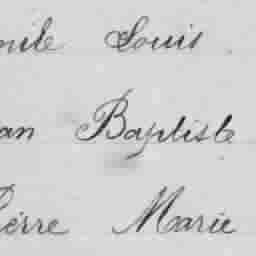 mile Louis
an Baptiste
ierre Marie